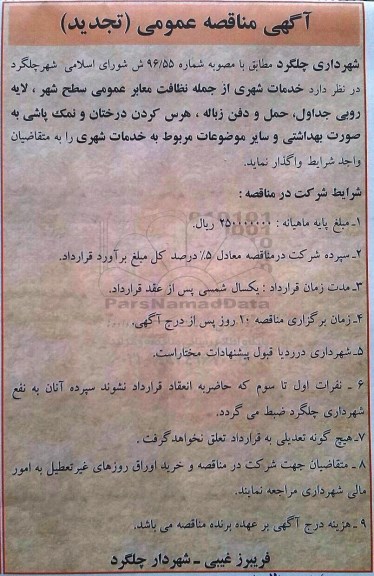 آگهی مناقصه عمومی (تجدید)
شهرداری چلگرد مطابق با مصوبه شماره ۹۶/۵۵ ش شورای اسلامی شهرچلگرد
در نظر دارد خدمات شهری از جمله نظافت معابر عمومی سطح شهر ، لایه
روبی جداول، حمل و دفن زباله ، هرس کردن درختان و نمک پاشی به
صورت بهداشتی و سایر موضوعات مربوط به خدمات شهری را به متقاضیان
واجد شرایط واگذار نماید.
شرایط شرکت در مناقصه :
۱ـ مبلغ پایه ماهیانه : ۲۵۰۰۰۰۰۰۰ ریال.
۲ـ سپرده شرکت درمناقصه معادل ۵٪ درصد کل مبلغ برآورد قرارداد.
۳ـ مدت زمان قرارداد : یکسال شمسی پس از عقد قرارداد.
۴ـ زمان برگزاری مناقصه ۱۰ روز پس از درج آگهی.
ParsNamadData
۵ـ شهرداری درردیا قبول پیشنهادات مختاراست.
۶ ـ نفرات اول تا سوم که حاضربه انعقاد قرارداد نشوند سپرده آنان به نفع
شهرداری چلگرد ضبط می گردد.
۷ـ هیچ گونه تعدیلی به قرارداد تعلق نخواهدگرفت .
۸ ـ متقاضیان جهت شرکت در مناقصه و خرید اوراق روزهای غیرتعطیل به امور
مالی شهرداری مراجعه نمایند.
۹ ـ هزینه درج آگهی بر عهده برنده مناقصه می باشد.
فریبرز غیبی ـ شهردار چلگرد